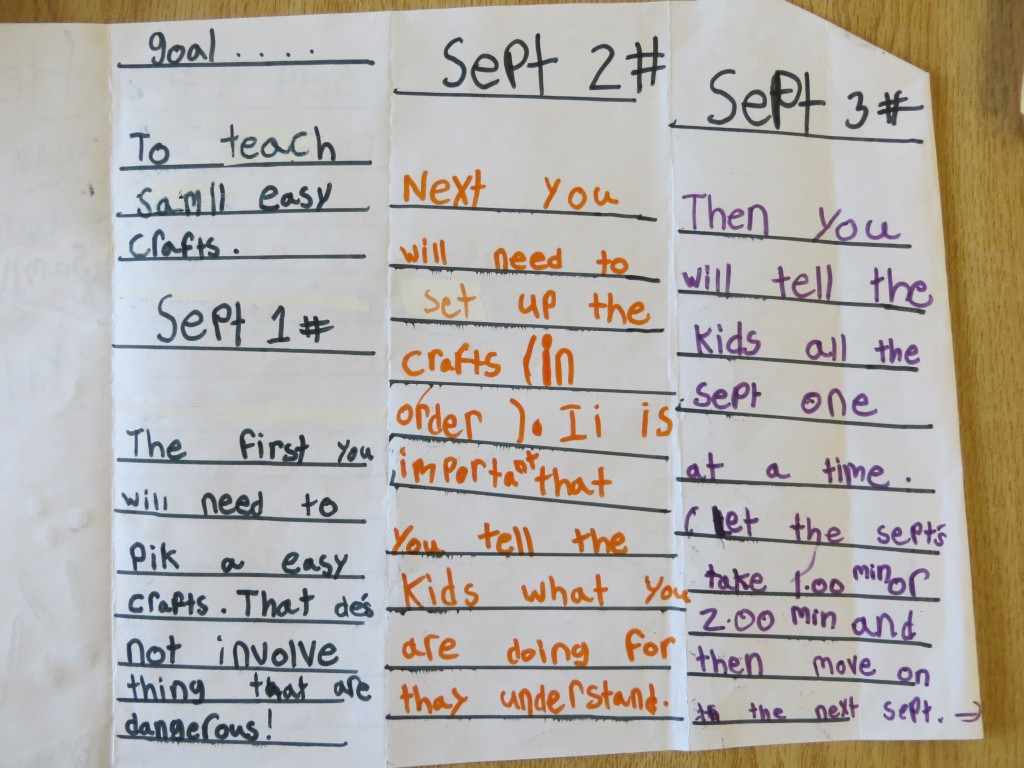 goal ....
To teach
samll easy
crafts.
Sept 1#
The first you
will need to
Pik a easy
crafts. That des
not involve
thing that are
dangerous!
Sept 2#
Next you
will need to
set up the
crafts (in
order ). Ii is
important that
You tell the
Kids what you
are doing for
thay understand.
Sept 3#
Then you
will tell the
Kids all the
sept one
at a time.
( let the sept's
take 1.00 min or
2.00 min and
then move on
to the next sept. →